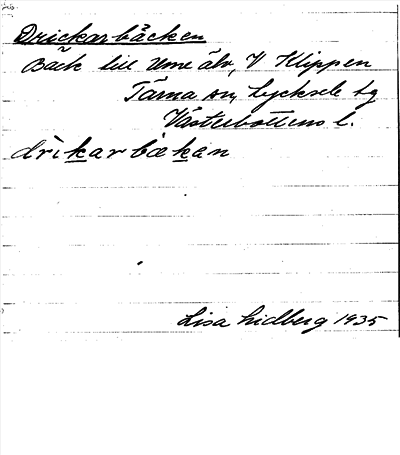 Drickarbäcken
Bäck till Ume älv, V Klippen
Tärna sn, Lycksele tg
Västerbottens l.
drikarbækan
Lisa Lidberg 1935